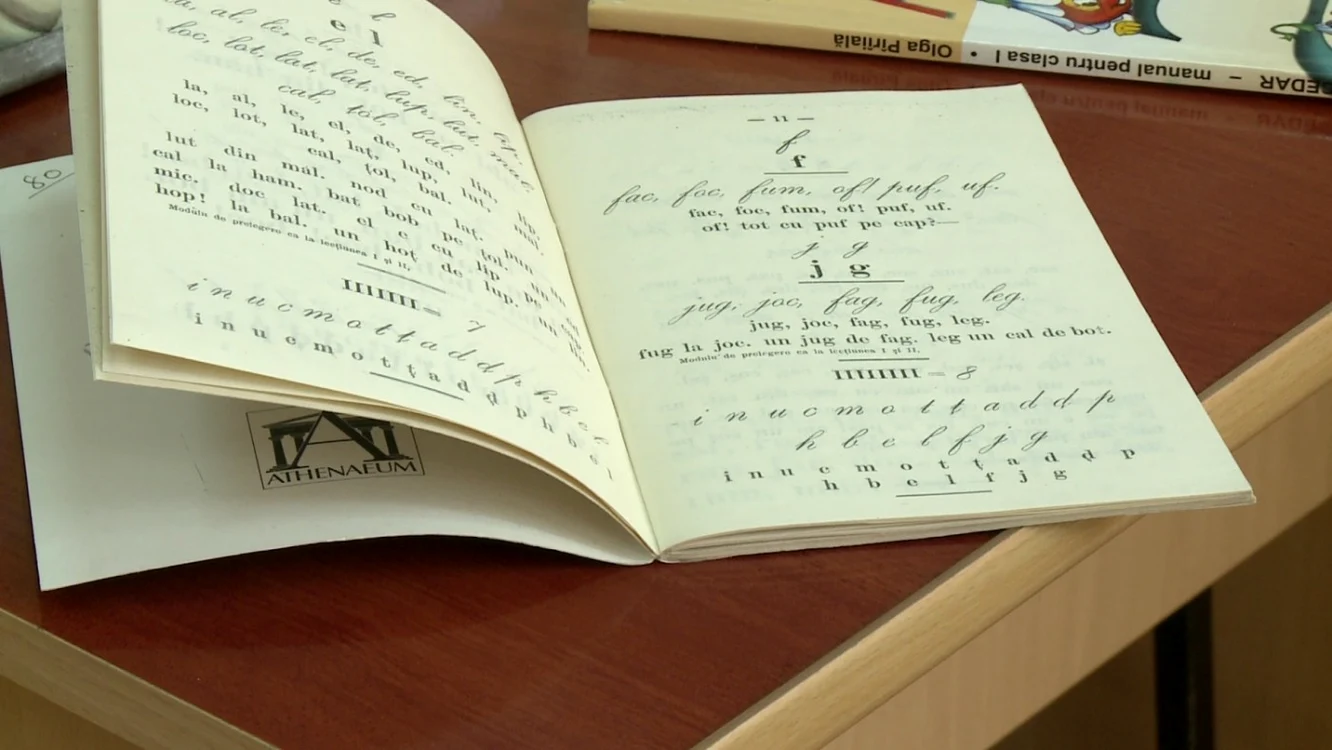 e l
la, al, le, el, de, ed, lin, lip.
loc, lot, lat, laț, lup, lut, mal.
cal, țol, bal.
la, al, le, el, de, ed, lin, lip.
loc, lot, lat, laț, lup, lut, mal.
cal, țol, bal.
lut din mal. nod cu lat. pun un
cal la ham. bat bob pe țol. un
mic. doc lat. el e cu lip
hop! la bal. un hoț de lup. un
ca la lecțiunea I și II.
IIIIIII = 7
i n u c m o t ț a d d p h b e l
i n u c m o t ț a d d p h b e l
80
ATHENAEUM
— 11 —
f
f
fac, foc, fum, of! puf, uf.
fac, foc, fum, of! puf, uf.
of! tot cu puf pe cap?—
j g
j g
jug, joc, fag, fug, leg.
jug, joc, fag, fug, leg.
fug la joc. un jug de fag. leg un cal de bot.
Modulu' de prelegere ca la lecțiunea I și II.
IIIIIIII = 8
i n u c m o t ț a d d p
h b e l f j g
i n u c m o t ț a d d p
h b e l f j g
EDAR – manual pentru clasa I • Olga Piriială